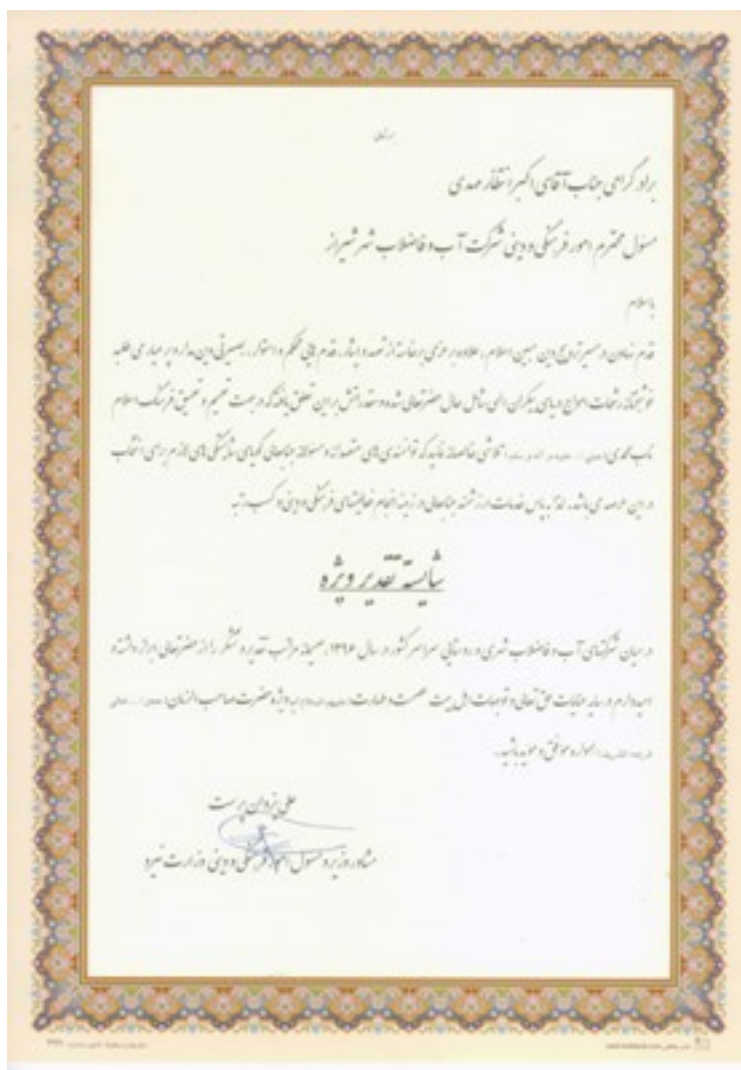 برادر گرامی جناب آقای اکبر انتظار مهدی
مسئول محترم امور فرهنگی و دینی شرکت آب و فاضلاب شهر شیراز
با سلام
قدم نهادن در مسیر ترویج دین مبین اسلام، علاوه بر عزمی برخاسته از تعهد و ایثار، قدم هایی محکم و استوار، بصیرتی دین مدار و پر عیار می طلبد
خوشبختانه رشحات امواج دریای بیکران الهی شامل حال حضرتعالی شده و مقدراتش بر این تعلق یافته که در جهت تعمیم و تعمیق فرهنگ اسلام
ناب محمدی تلاشی خالصانه نمایید که توانمندی های متعهدانه و مسئولانه جنابعالی گویای شایستگی های لازم برای انتخاب
در این عرصه می باشد. لذا به پاس خدمات ارزشمند جنابعالی در زمینه انجام فعالیتهای فرهنگی و دینی و کسب رتبه
شایسته تقدیر ویژه
در میان شرکتهای آب و فاضلاب شهری و روستایی سراسر کشور در سال ۱۳۹۶، صمیمانه مراتب تقدیر و تشکر را از حضرتعالی ابراز داشته و
امیدوارم در سایه عنایات حق تعالی و توجهات اهل بیت عصمت و طهارت به ویژه حضرت صاحب الزمان
همواره موفق و موید باشید.
علی یزدان پرست
مشاور وزیر و مسئول امور فرهنگی و دینی وزارت نیرو